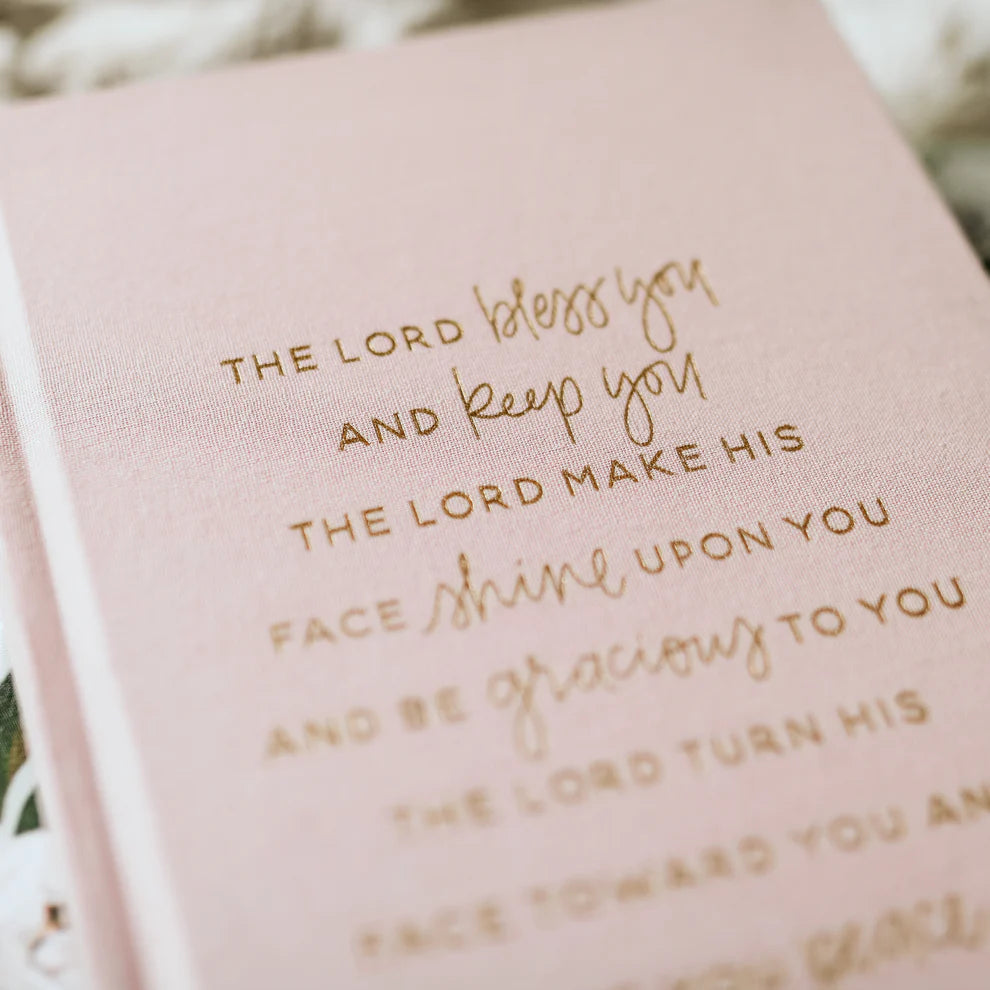 THE LORD bless you
AND keep you
THE LORD MAKE HIS
FACE shine UPON YOU
AND BE gracious TO YOU
THE LORD TURN HIS
FACE TOWARD YOU AN
YOU peace